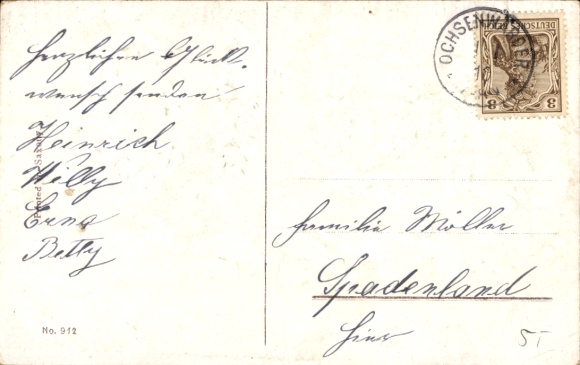 herzlichen Glück-
wunsch senden
Heinrich
Willy
Erna
Betty
Printed in Saxony
No. 912
OCHSENWÄRDER
DEUTSCHES REICH
3 3
Familie Möller
Spadenland
hier
5T